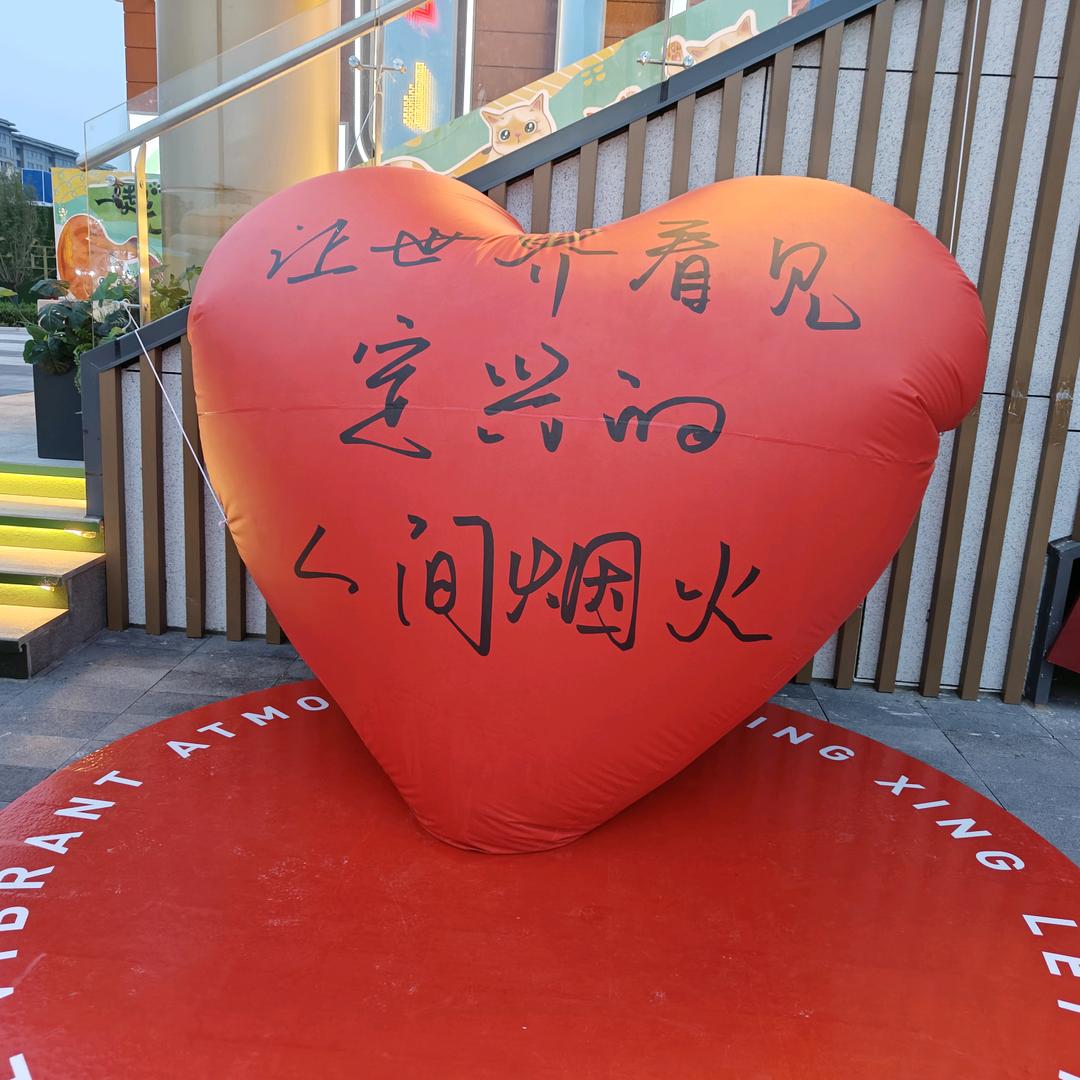 让世界看见
定兴的
人间烟火
VIBRANT ATMO
ING XING LET